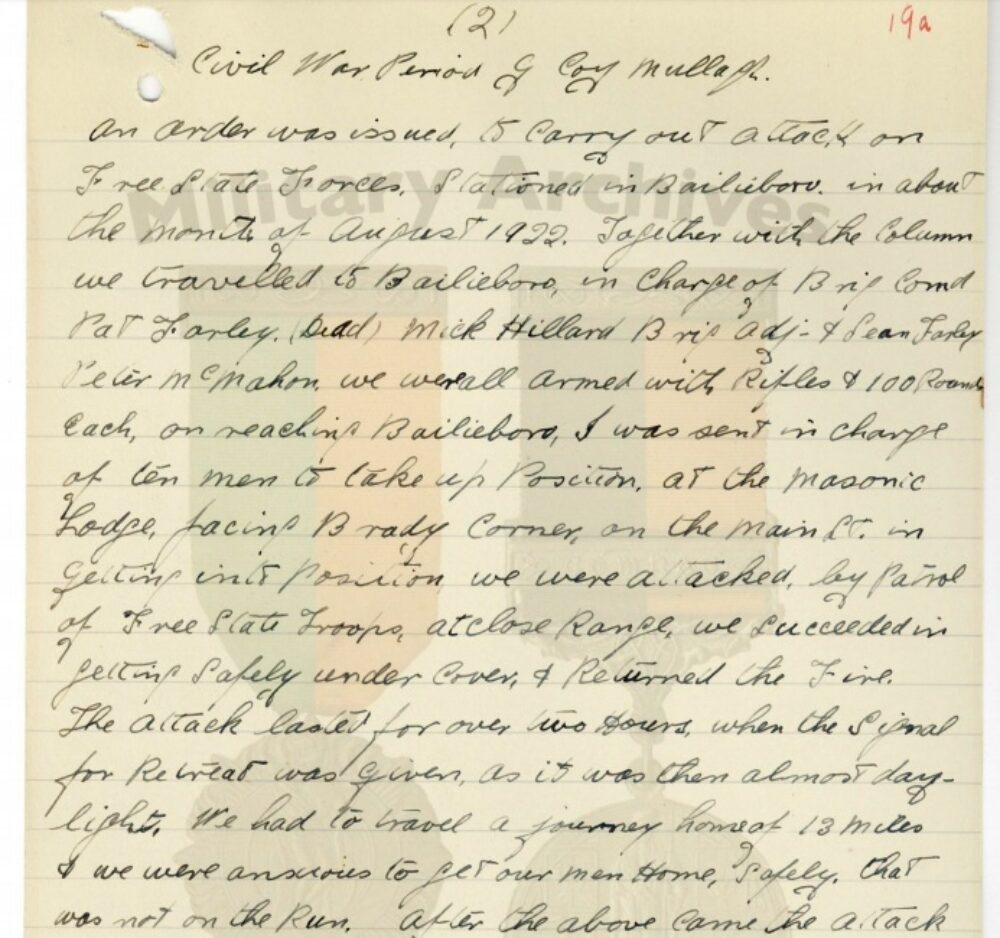 (2)
19a
Civil War Period G Coy Mullagh.
An order was issued, to Carry out attack on
Free State Forces, Stationed in Bailieboro. in about
the month of August 1922. Together with the Column
we travelled to Bailieboro, in Charge of Brig Comd
Pat Farley. (Dead) Mick Hillard Brig Adj- & Sean Farley
Peter McMahon, we wereall armed with Rifles & 100 Rounds
Each, on reaching Bailieboro, I was sent in charge
of ten men to take up Position, at the Masonic
Lodge, facing Brady Corner, on the Main St. in
Getting into position we were attacked, by Patrol
of Free State Troops, at close Range, we Succeeded in
getting Safely under Cover, & Returned the Fire.
The attack lasted for over two Hours, when the Signal
for Retreat was Given, as it was then almost day-
light. We had to travel a journey home of 13 Miles
& we were anxious to get our men Home, Safely. that
was not on the Run. After the above Came the attack
Military Archives